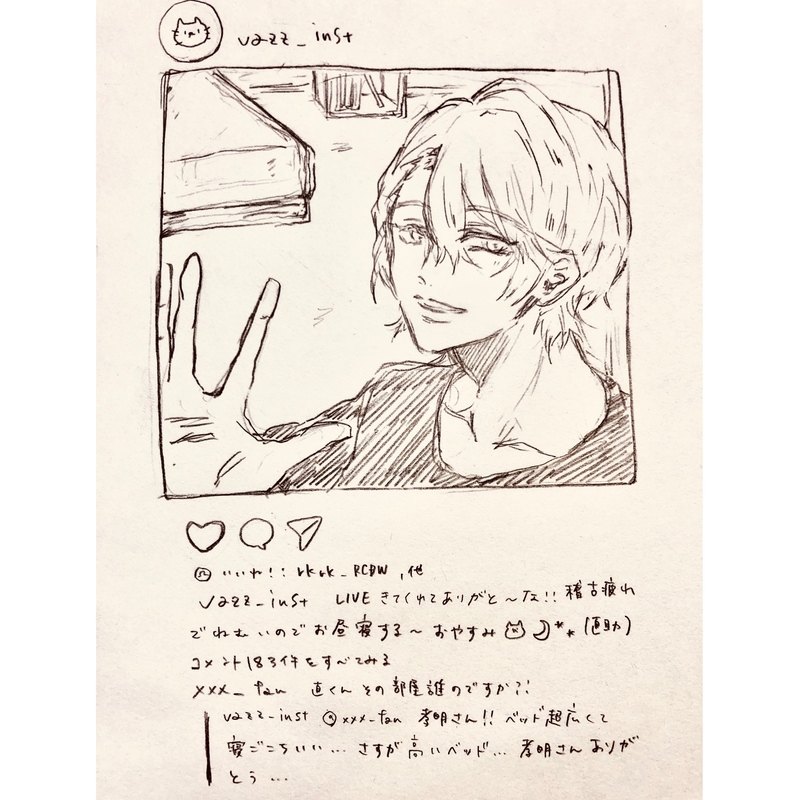 vazz_inst
いいね!: rkrk_RCDW , 他
vazz_inst LIVEきてくれてありがと〜な!! 稽古疲れ
でねむいのでお昼寝する〜おやすみ (直助)
コメント183件をすべてみる
xxx_fan 直くんその部屋誰のですか?!
vazz_inst @xxx_fan 孝明さん!! ベッド超広くて
寝ごこちいい… さすが高いベッド… 孝明さんありが
とう…